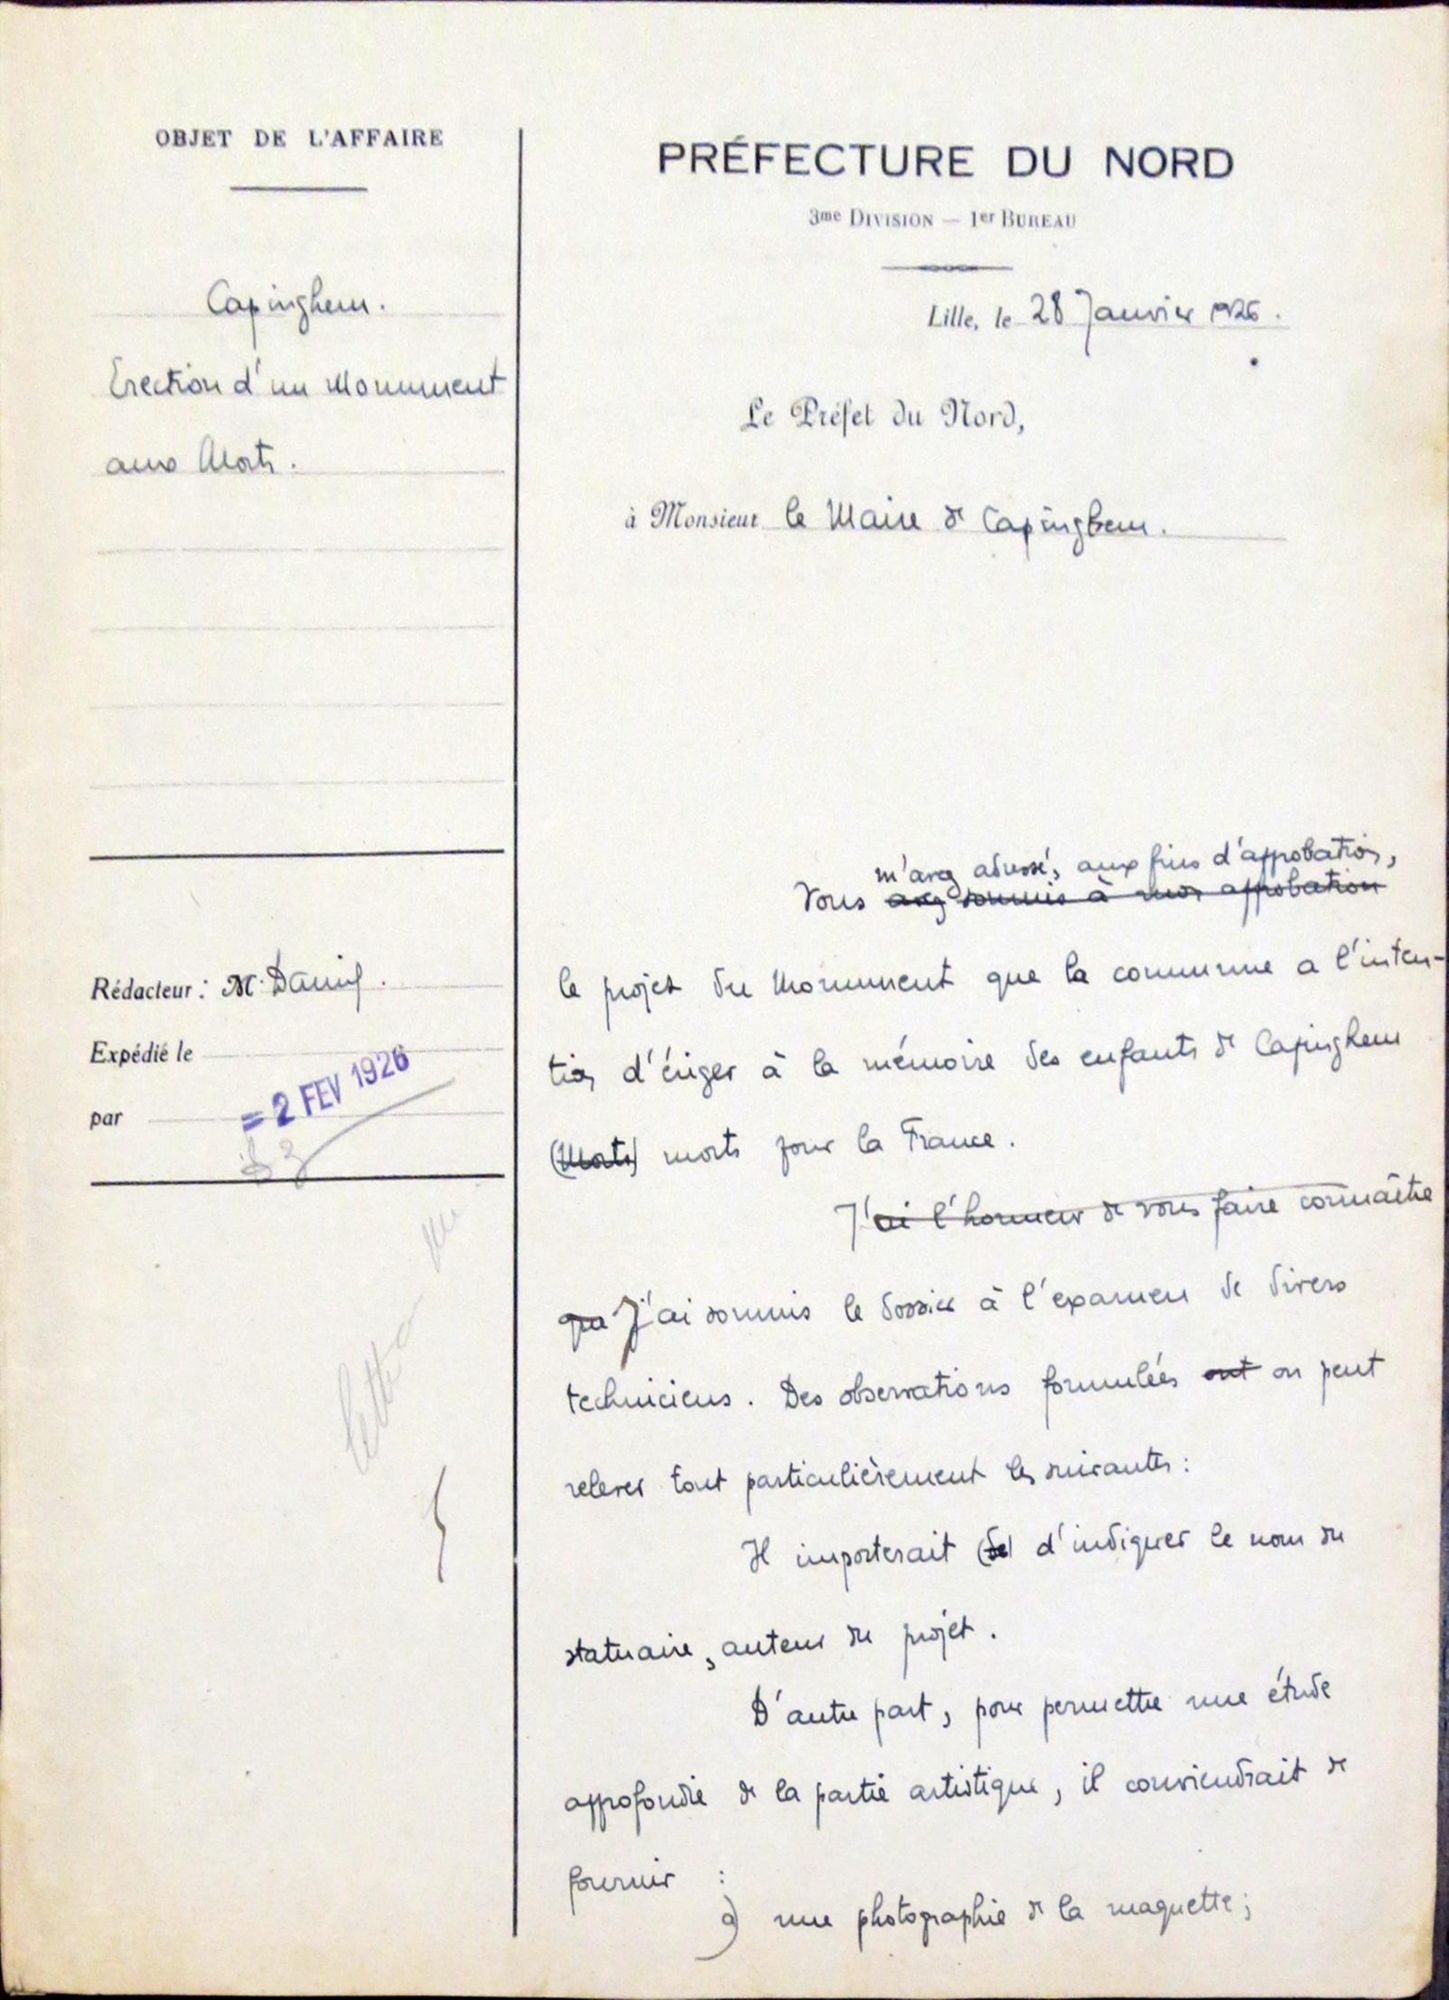 OBJET DE L'AFFAIRE
Capinghem.
Erection d'un Monument
aux Morts.
Rédacteur : M.
Expédié le
= 2 FEV 1926
par
PRÉFECTURE DU NORD
3me DIVISION — 1er BUREAU
Lille, le 28 Janvier 1926.
Le Préfet du Nord,
à Monsieur le Maire de Capinghem.
m'avez adressé, aux fins d'approbation,
Vous avez soumis à mon approbation
le projet du Monument que la commune a l'inten-
tion d'ériger à la mémoire des enfants de Capinghem
(Morts) morts pour la France.
J'ai l'honneur de vous faire connaître
que J'ai soumis le dossier à l'examen de divers
techniciens. Des observations formulées ont on peut
relever tout particulièrement les suivantes :
Il importerait (de) d'indiquer le nom du
statuaire, auteur du projet.
D'autre part, pour permettre une étude
approfondie de la partie artistique, il conviendrait de
fournir :
a) une photographie de la maquette ;